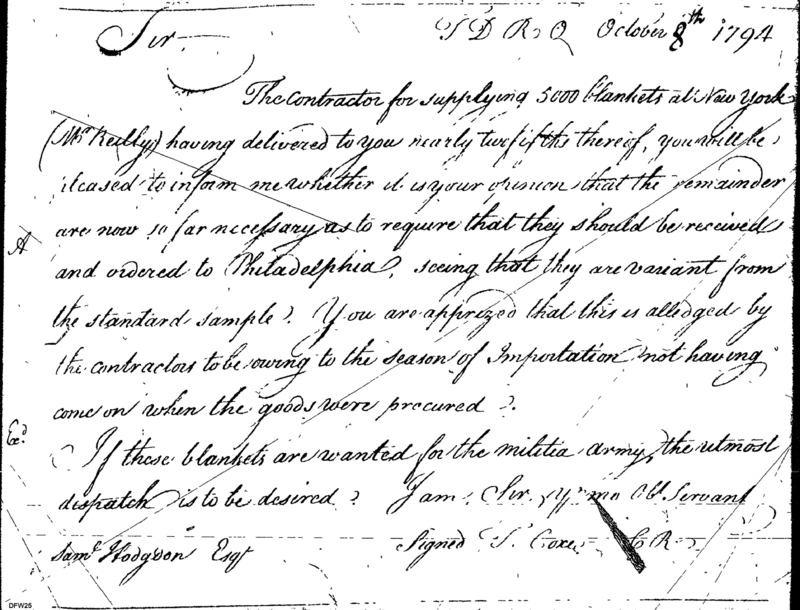 Sir
T D R O October 8th 1794
The Contractor for supplying 5000 blankets at New York
(Mr Reilly) having delivered to you nearly two fifths thereof, you will be
pleased to inform me whether it is your opinion that the remainder
are now so far necessary as to require that they should be received
A
and ordered to Philadelphia, seeing that they are variant from
the standard sample? You are apprized that this is alledged by
the contractors to be owing to the season of Importation not having
come on when the goods were procured?
Exd
If these blankets are wanted for the militia army, the utmost
dispatch is to be desired? I am Sir, Yr mo Ob Servant
Saml Hodgdon Esqr
Signed T. Coxe C R
DFW25